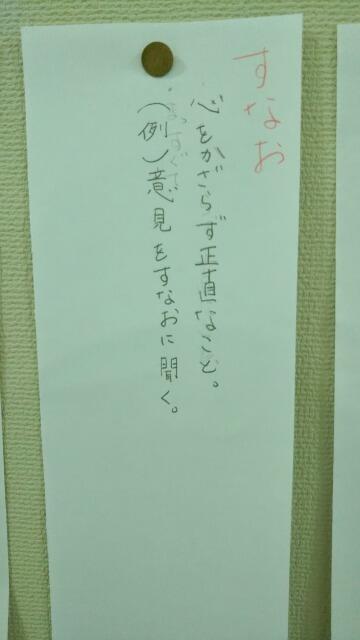 すなお
心をかざらず正直なこと。
（例）意見をすなおに聞く。